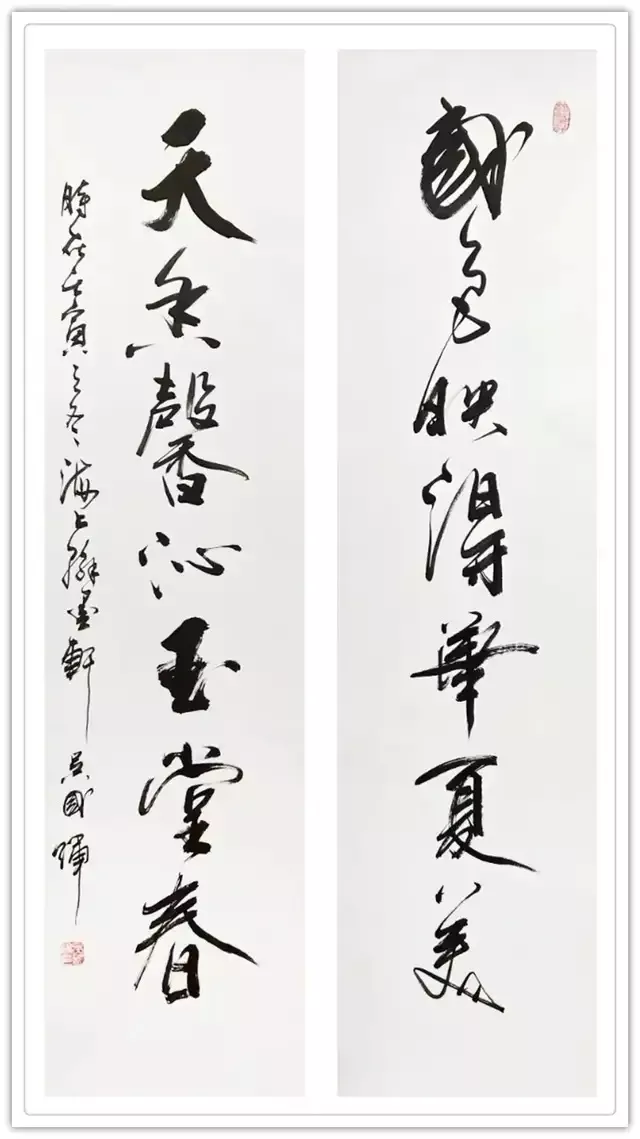 國色映得華夏美
天香馨沁玉堂春
時在壬寅之冬海上翰墨軒 吳國輝